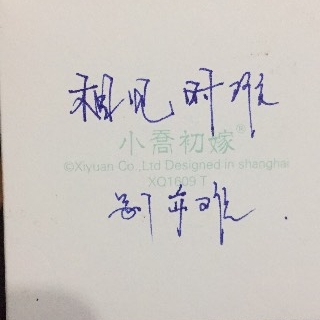 相见时难
小喬初嫁®
©Xiyuan Co.,Ltd Designed in shanghai
XQ1609 T
别亦难.